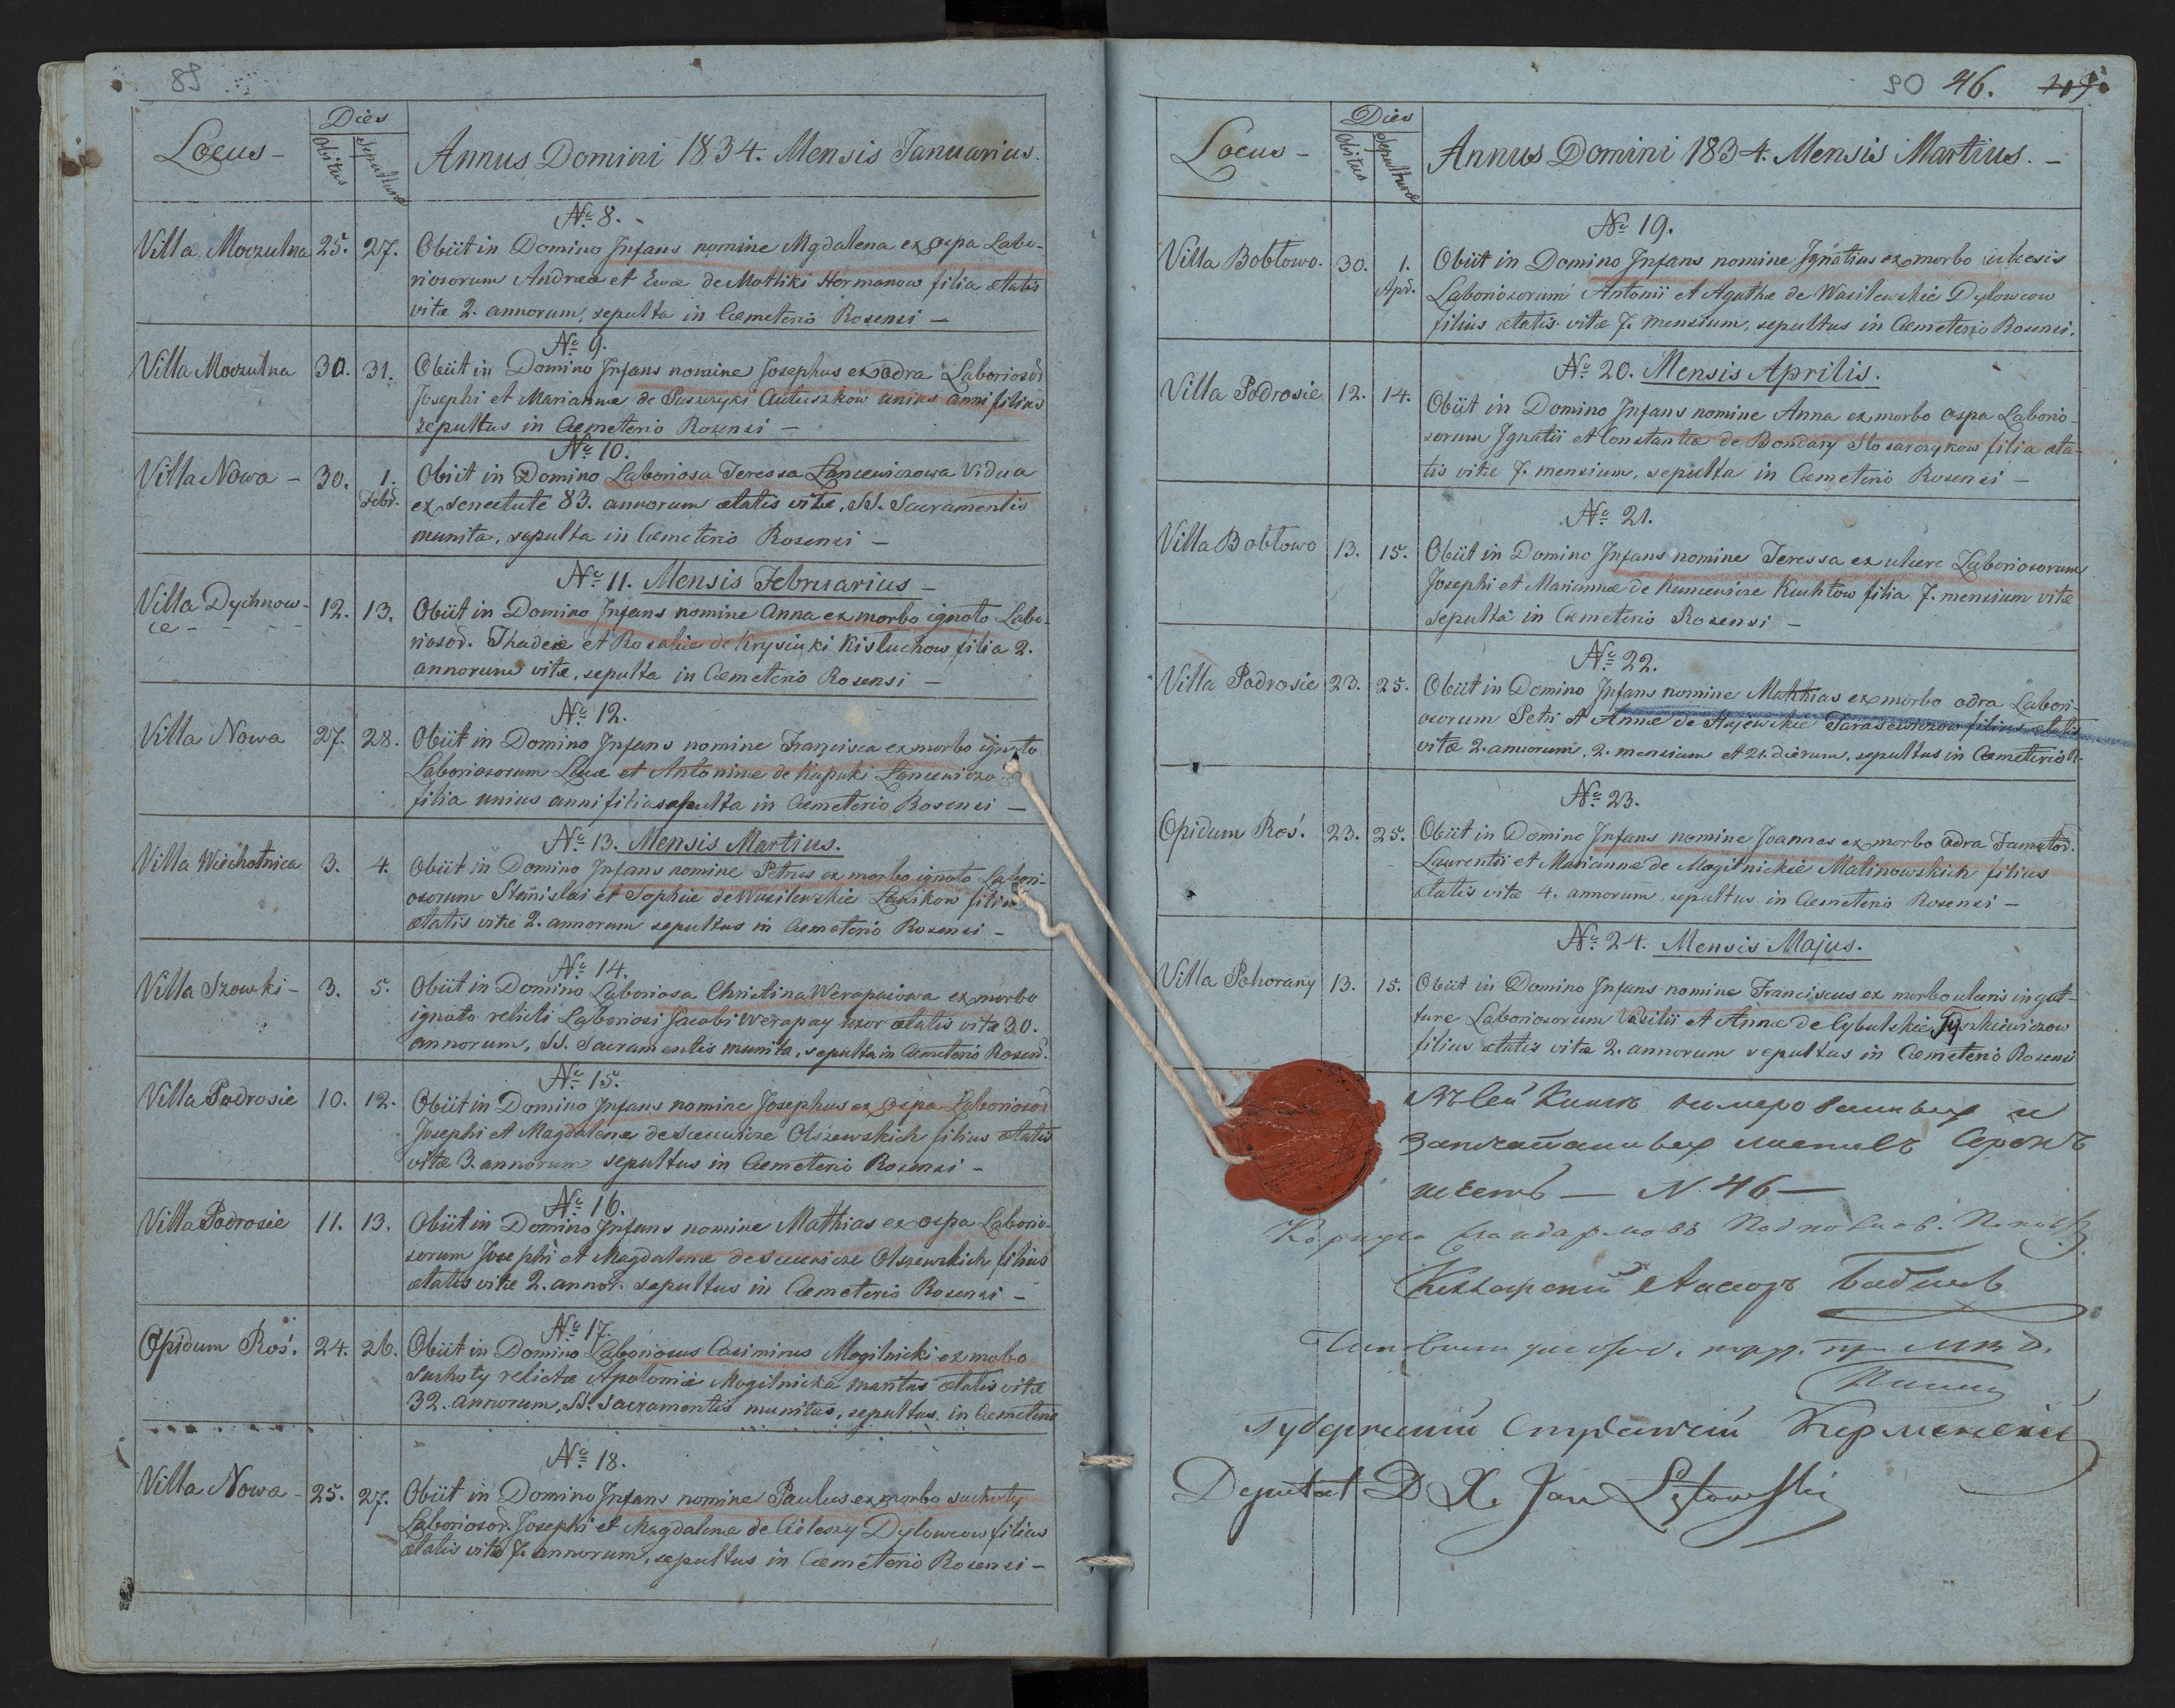 89
Locus –
Dies
Obitus
Sepulturæ
Annus Domini 1834. Mensis Januarius.
No 8.
Villa Moczulna
25.
27.
Obiit in Domino Infans nomine Mgdalena ex ospa Labo-
riosorum Andreæ et Evæ de Motliki Hermanow filia ætatis
vitæ 2. annorum, sepulta in Cæmeterio Rosensi –
No 9.
Villa Moczulna
30.
31.
Obiit in Domino Infans nomine Josephus ex odra Laboriosor
Josephi et Mariannæ de Autuszkow unius anni filius
sepultus in Cæmeterio Rosensi –
No 10.
Villa Nowa –
30.
1.
Febr.
Obiit in Domino Laboriosa Teressa Lancewiczowa Vidua
ex senectute 83. annorum ætatis vitæ, SS. Sacramentis
munita, sepulta in Cæmeterio Rosensi –
No 11. Mensis Februarius –
Villa Dychnow-
ce
12.
13.
Obiit in Domino Infans nomine Anna ex morbo ignoto Labo-
riosor. Thadeæ et Rosaliæ de Krysiuki Kistuchow filia 2.
annorum vitæ, sepulta in Cæmeterio Rosensi –
No 12.
Villa Nowa
27.
28.
Obiit in Domino Infans nomine Francisca ex morbo ignoto
Laboriosorum Lucæ et Antoninæ de Kapuki
filia unius anni filia sepulta in Cæmeterio Rosensi –
No 13. Mensis Martius.
Villa Wiechotnica
3.
4.
Obiit in Domino Infans nomine Petrus ex morbo ignoto Labori-
osorum Stanislai et Sophiæ de Wasilewskie Lasikow
ætatis vitæ 2. annorum sepultus in Cæmeterio Rosensi –
No 14.
Villa Szowki –
3.
5.
Obiit in Domino Laboriosa Christina Werapaiowa ex morbo
ignoto relicti Laboriosi Jacobi Werapay uxor ætatis vitæ 30.
annorum, SS. Sacramentis munita, sepulta in Cæmeterio Rosens.
No 15.
Villa Podrosie
10.
12.
Obiit in Domino Infans nomine Josephus ex ospa Laboriosor
Josephi et Magdalenæ de Olszewskich filius ætatis
vitæ 3. annorum sepultus in Cæmeterio Rosensi –
No 16.
Villa Podrosie
11.
13.
Obiit in Domino Infans nomine Mathias ex ospa Laborio-
sorum Josephi et Magdalenæ de Olszewskich filius
ætatis vitæ 2. annor. sepultus in Cæmeterio Rosensi –
No 17.
Opidum Roś.
24.
26.
Obiit in Domino Laboriosus Casimirus Mogilnicki ex mobo
suchoty relictæ Apoloniæ Mogilnicka maritus ætatis vitæ
32. annorum, SS. Sacramentis munitus, sepultus in Cæmeterio
No 18.
Villa Nowa –
25.
27.
Obiit in Domino Infans nomine Paulus ex morbo suchoty
Laboriosor. Josephi et Magdalenæ de Cieleszy Dylowcow filius
ætatis vitæ 7. annorum, sepultus in Cæmeterio Rosensi –
90 46.
Locus –
Dies
Obitus
Sepulturæ
Annus Domini 1834. Mensis Martius. –
No 19.
Villa Bobłowo.
30.
1.
Apr.
Obiit in Domino Infans nomine Ignatius ex morbo
Laboriosorum Antonii et Agathæ de Wasilewskie Dylowcow
filius ætatis vitæ 7. mensium, sepultus in Cæmeterio Rosensi.
No 20. Mensis Aprilis.
Villa Podrosie
12.
14.
Obiit in Domino Infans nomine Anna ex morbo ospa Laborio-
sorum Ignatii et Constantiæ de Bondary Slosarczykow filia æta-
tis vitæ 7. mensium, sepulta in Cæmeterio Rosensi –
No 21.
Villa Bobłowo
13.
15.
Obiit in Domino Infans nomine Teressa ex ulcere Laboriosorum
Josephi et Mariannæ de Kuncewicze Kuchtow filia 7. mensium vitæ
sepulta in Cæmeterio Rosensi –
No 22.
Villa Podrosie
23.
25.
Obiit in Domino Infans nomine Mathias ex morbo odra Labori-
osorum Petri et Annæ de Tarasewiczow filius ætatis
vitæ 2. annorum, 2. mensium et 21. dierum, sepultus in Cæmeterio R.
No 23.
Opidum Roś.
23.
25.
Obiit in Domino Infans nomine Joannes ex morbo odra
Laurentii et Mariannæ de Mogilnickie Malinowskich filius
ætatis vitæ 4. annorum sepultus in Cæmeterio Rosensi –
No 24. Mensis Majus.
Villa Pohorany
13.
15.
Obiit in Domino Infans nomine Franciscus ex morbo ulceris in gut-
ture Laboriosorum Vasilii et Annæ de Cybulskie
filius ætatis vitæ 2. annorum sepultus in Cæmeterio Rosensi
Въ сей Книгѣ нумерованныхъ и
запечатанныхъ листовъ сорокъ
шесть — N. 46 —
Корпуса Жандармовъ
Губернскій Стряпчій
Deputat D X. Jan